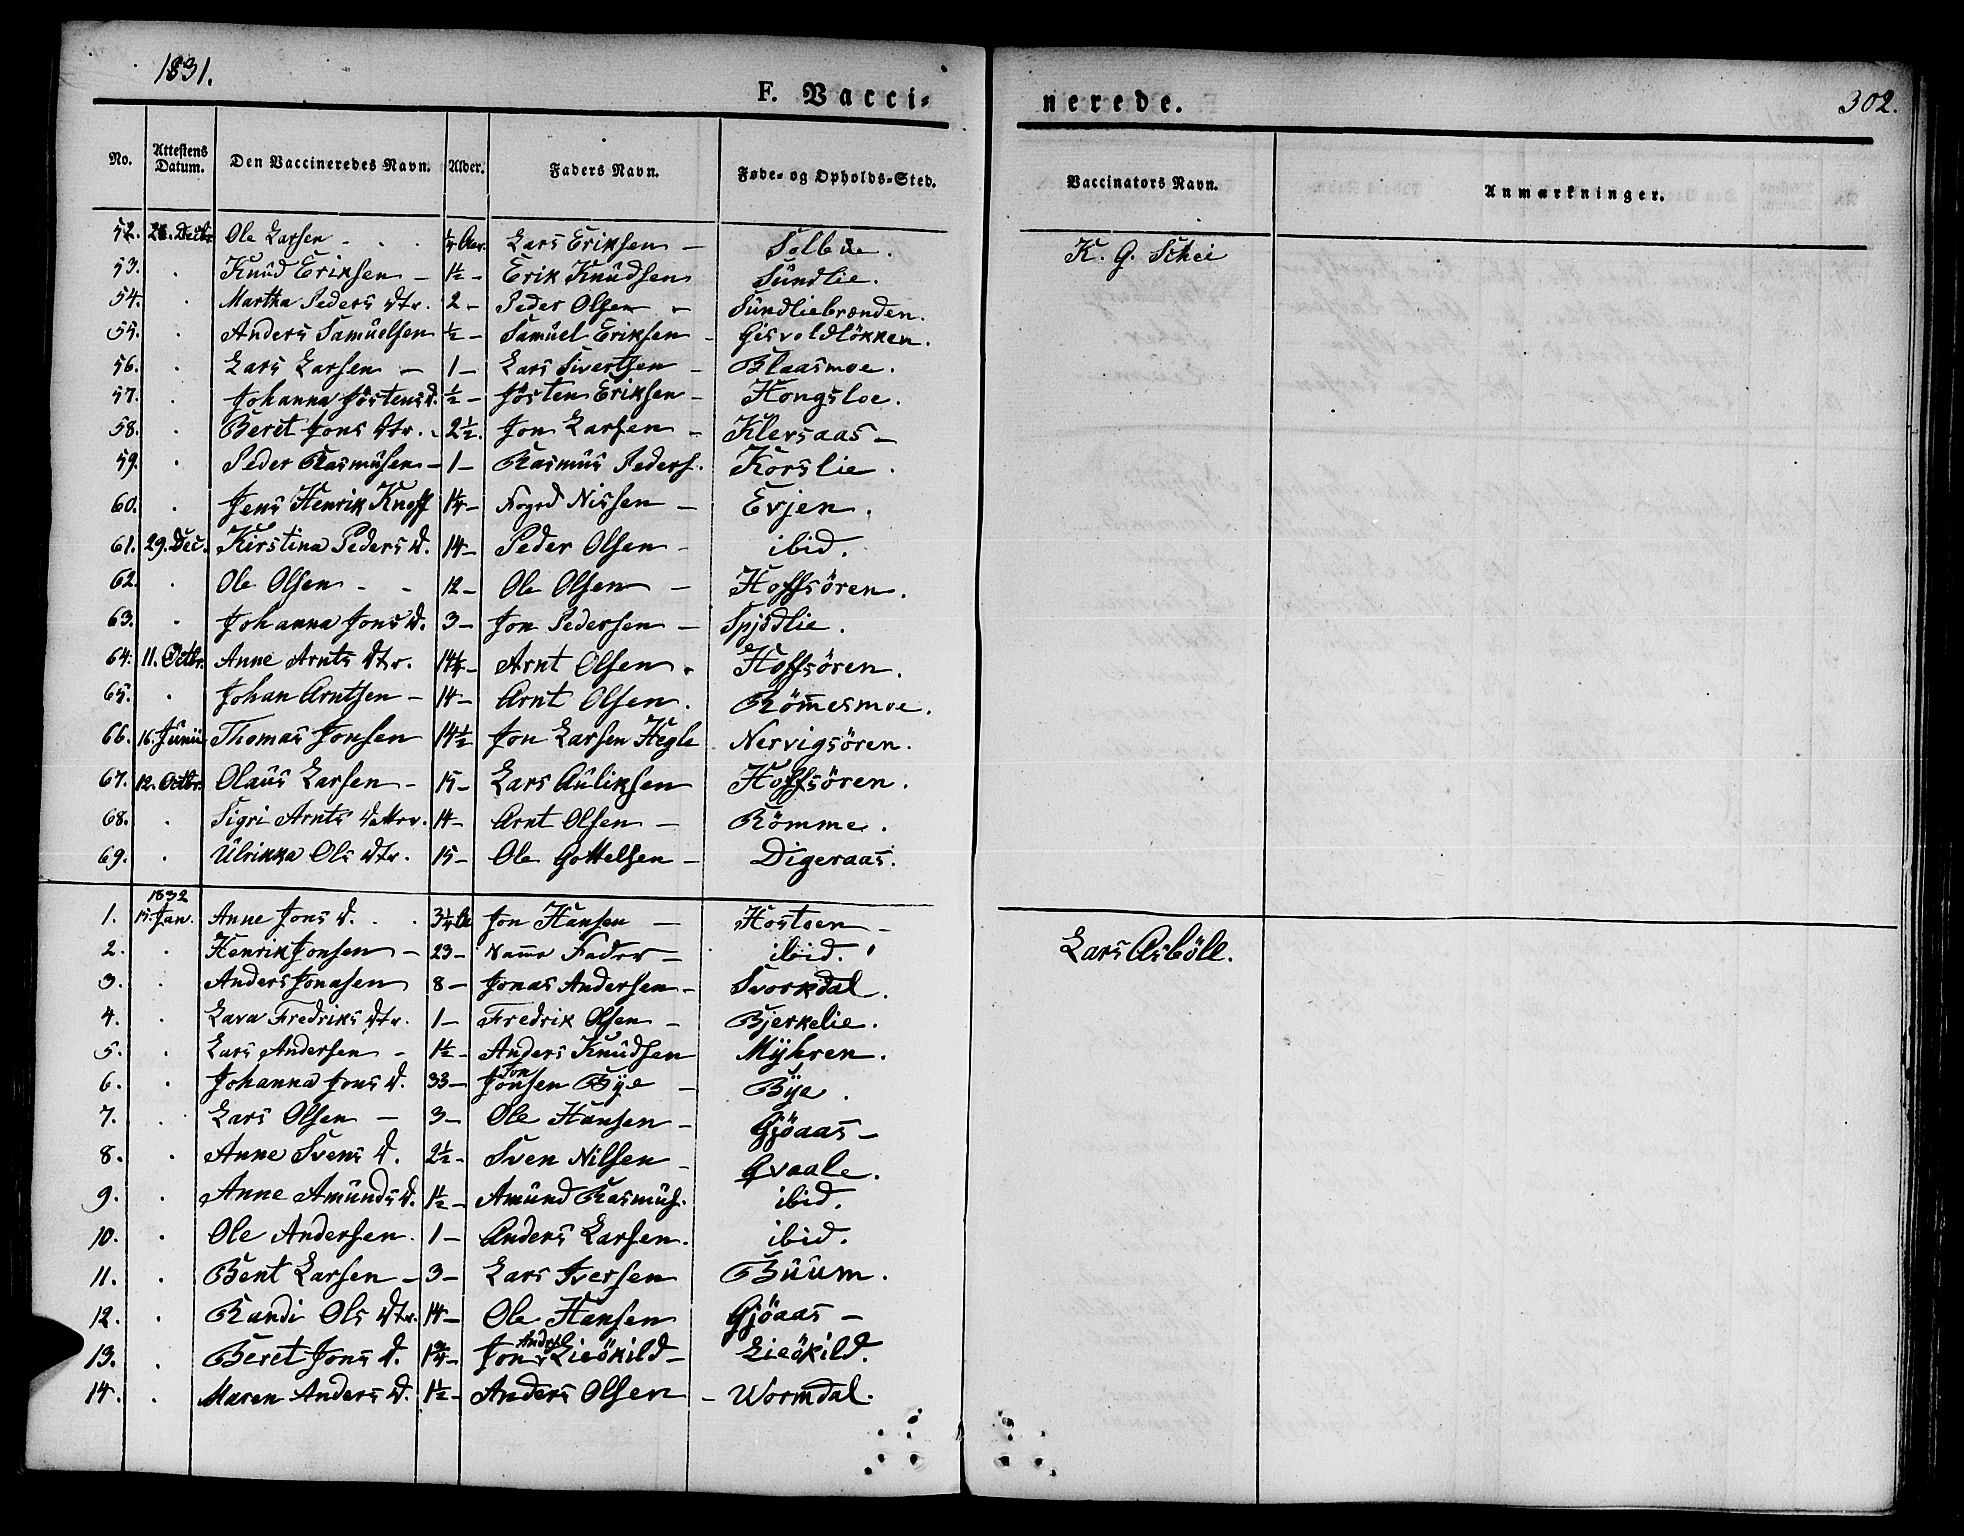 1831.
F. Vacci-
nerede.
302.
No. Attestens Datum. Den Vaccineredes Navn. Alder. Faders Navn. Føde- og Opholds-Sted. Vaccinators Navn. Anmærkninger.
52. Decbr Ole Larsen - . . ¼ Aar. Lars Eriksen — Solbue. K. G. Schei
53. . Knud Eriksen — 1½ — Erik Knudsen Sundlie.
54. . Martha Peders Dtr. 2 — Peder Olsen - Sundliebrænden.
55. . Anders Samuelsen ½ — Samuel Eriksen - Gisvoldløkken.
56. . Lars Larsen — 1 — Lars Sivertsen — Blaasmoe.
57. . Johanna Jöstens D. ½ — Jösten Eriksen — Hongsloe.
58. . Beret Jons Dtr. . 2½. Jon Larsen — Klevsaas —
59. . Peder Rasmusen — 1 — Rasmus Peders. Korslie.
60. . Jens Henrik Knoff 1¼ — Fogd Nissen — Evjen.
61. 29. Dec. Kirstina Peders D. 14 — Peder Olsen — ibid.
62. . Ole Olsen - - 12 — Ole Olsen — Hoffsören.
63. . Johanna Jons D. 3 — Jon Pedersen — Spjödlie.
64. 11. Octbr. Anne Arnts Dtr. 14½ — Arnt Olsen . Hoffsören.
65. . Johan Arntsen — 14 — Arnt Olsen. Röm̅esmoe.
66. 16. Junii Thomas Jonsen 14½ Jon Larsen Hegle Nervigsören.
67. 12. Octbr. Olaus Larsen — 15 — Lars Auliksen Hoffsören.
68. . Sigri Arnts Datter. 14 — Arnt Olsen — Römme.
69. . Ulrikka Ols Dtr. 15 — Ole Gottelsen — Digeraas.
1832
1. 15. Jan. Anne Jons D. . . 3¼ A Jon Hansen — Hostoen —
2. . Henrik Jonsen — 23 — Samme Fader — ibid. Lars Asböll.
3. . Anders Jonasen 8 — Jonas Andersen — Svorkdal.
4. . Lava Fredriks Dtr. 1 — Fredrik Olsen — Bjerkelie.
5. . Lars Andersen — 1½ — Anders Knudsen Mÿhren.
6. . Johanna Jons D. 33 — Jon Jonsen Bÿe — Bÿe.
7. . Lars Olsen — 3 — Ole Hansen — Gjöaas —
8. . Anne Svens D. 2½ — Sven Nilsen — Qvaale.
9. . Anne Amunds D. 1½ — Amund Rasmus. ibid.
10. . Ole Andersen. 1 — Anders Larsen. ibid.
11. . Bent Larsen — 3 — Lars Iversen Buum.
12. . Randi Ols Dtr. 14 — Ole Hansen Gjöaas —
13. . Beret Jons D. 1¾ — Jon Anders. Lieökild — Lieökild.
14. . Maren Anders D. 1½ — Anders Olsen — Wormdal.